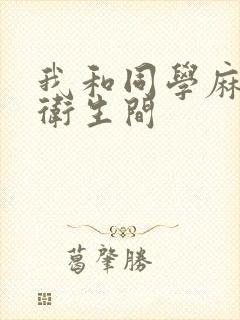 我和同學麻
衛生間
葛肇勝